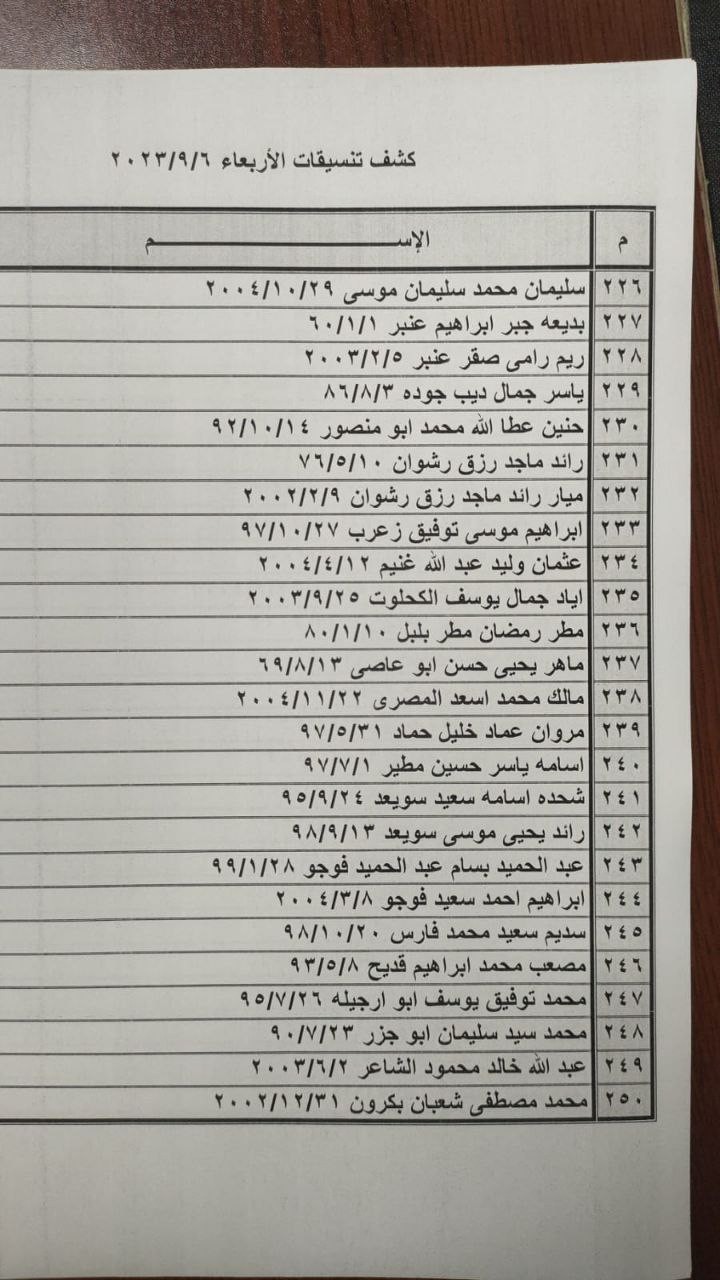 كشف تنسيقات الأربعاء ٢٠٢٣/٩/٦
م الإســـــــــــــم
٢٢٦ سليمان محمد سليمان موسى ٢٠٠٤/١٠/٢٩
٢٢٧ بديعه جبر ابراهيم عنبر ٦٠/١/١
٢٢٨ ريم رامى صقر عنبر ٢٠٠٣/٢/٥
٢٢٩ ياسر جمال ديب جوده ٨٦/٨/٣
٢٣٠ حنين عطا الله محمد ابو منصور ٩٢/١٠/١٤
٢٣١ رائد ماجد رزق رشوان ٧٦/٥/١٠
٢٣٢ ميار رائد ماجد رزق رشوان ٢٠٠٢/٢/٩
٢٣٣ ابراهيم موسى توفيق زعرب ٩٧/١٠/٢٧
٢٣٤ عثمان وليد عبد الله غنيم ٢٠٠٤/٤/١٢
٢٣٥ اياد جمال يوسف الكحلوت ٢٠٠٣/٩/٢٥
٢٣٦ مطر رمضان مطر بلبل ٨٠/١/١٠
٢٣٧ ماهر يحيى حسن ابو عاصى ٦٩/٨/١٣
٢٣٨ مالك محمد اسعد المصرى ٢٠٠٤/١١/٢٢
٢٣٩ مروان عماد خليل حماد ٩٧/٥/٣١
٢٤٠ اسامه ياسر حسين مطير ٩٧/٧/١
٢٤١ شحده اسامه سعيد سويعد ٩٥/٩/٢٤
٢٤٢ رائد يحيى موسى سويعد ٩٨/٩/١٣
٢٤٣ عبد الحميد بسام عبد الحميد فوجو ٩٩/١/٢٨
٢٤٤ ابراهيم احمد سعيد فوجو ٢٠٠٤/٣/٨
٢٤٥ سديم سعيد محمد فارس ٩٨/١٠/٢٠
٢٤٦ مصعب محمد ابراهيم قديح ٩٣/٥/٨
٢٤٧ محمد توفيق يوسف ابو ارجيله ٩٥/٧/٢٦
٢٤٨ محمد سيد سليمان ابو جزر ٩٠/٧/٢٣
٢٤٩ عبد الله خالد محمود الشاعر ٢٠٠٣/٦/٢
٢٥٠ محمد مصطفى شعبان بكرون ٢٠٠٢/١٢/٣١